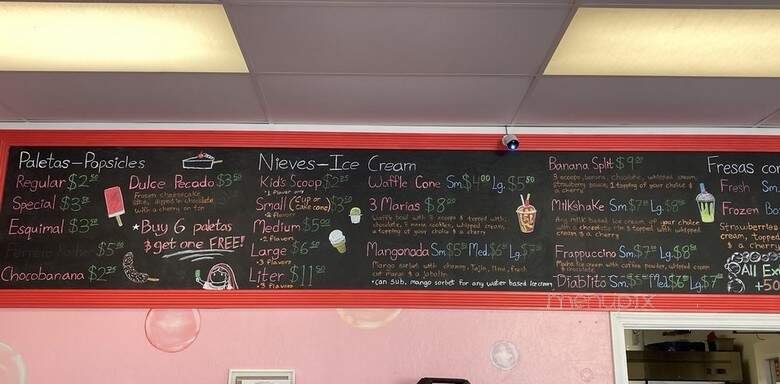 Paletas-Popsicles
Regular $2.50
Special $3.00
Esquimal $3.50
Ferrero Rocher $5.00
Chocobanana $2.75
Dulce Pecado $3.50
Frozen cheesecake
slice, dipped in chocolate
with a cherry on top
*Buy 6 paletas
& get one FREE!
Nieves-Ice Cream
Kid's Scoop
•1 flavor only
Small (cup or cake cone)
•2 flavors
Medium $5.00
•2 flavors
Large $6.50
•3 flavors
Liter $11.00
•3 flavors
Waffle Cone Sm. $4.00 Lg. $5.50
3 Marias $8.00
Waffle bowl with 3 scoops & topped with:
chocolate, 3 maria cookies, whipped cream,
a topping of your choice & a cherry
Mangonada Sm. Med. Lg.
Mango sorbet with chamoy, Tajin, lime, fresh
cut mango & a tamarin
•can sub. mango sorbet for any water based ice cream
Banana Split $9.00
3 scoops banana, chocolate, whipped cream,
strawberry sauce, 1 topping of your choice &
a cherry
Milkshake Sm. $7 Lg. $8
Any milk based ice cream of your choice
with a chocolate rim & topped with whipped
cream & a cherry
Frappuccino Sm. $7 Lg. $8
Mocha ice cream with coffee powder, whipped cream
& chocolate
Diablito Sm. $5 Med. $6 Lg. $7
Fresas con
Fresh Sm
Frozen Bo
Strawberries
cream, topped
& a cherry
All Ex
+50
menupix